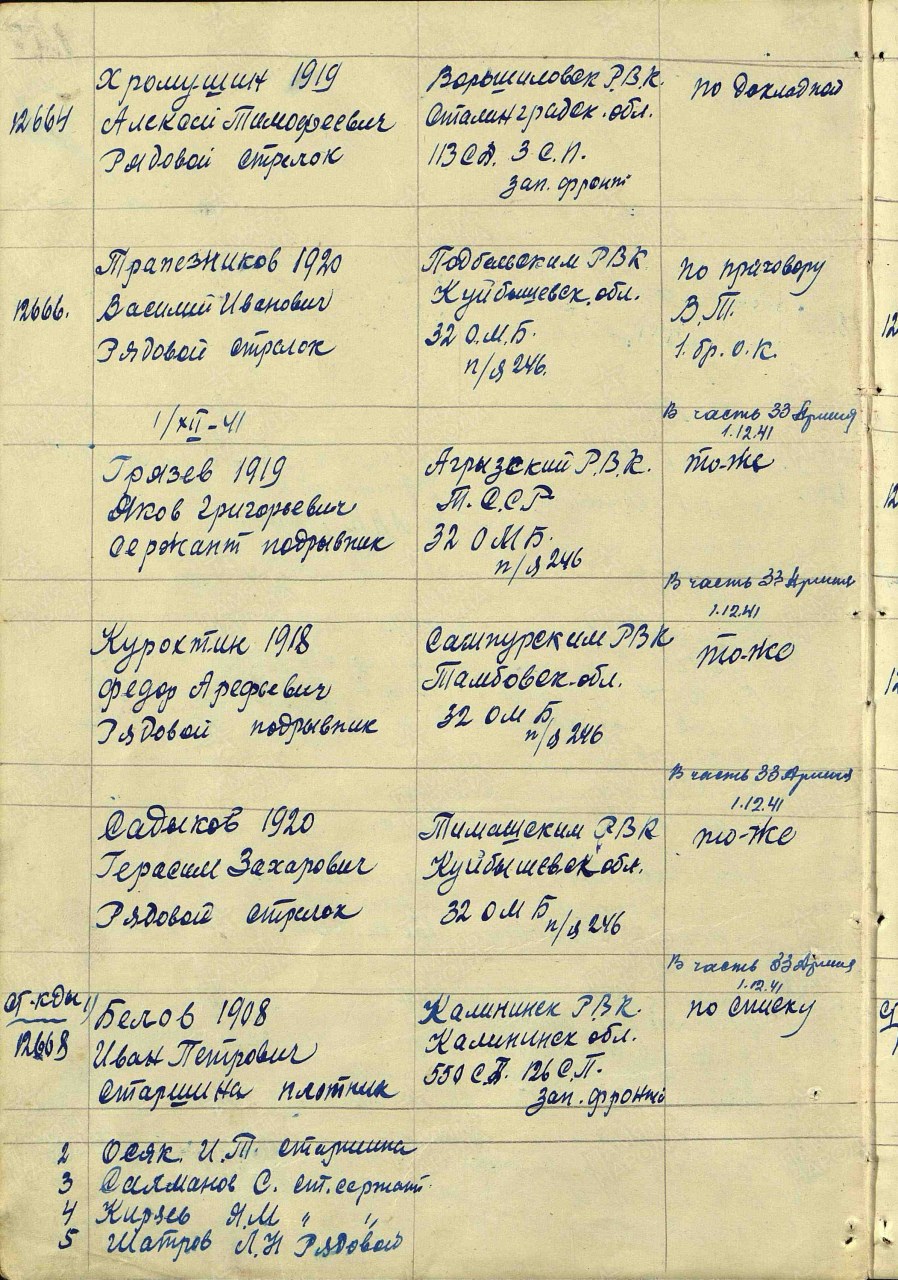 Хромушин 1919
Алексей Тимофеевич
Рядовой стрелок
12664
Ворошиловск Р.В.К.
Сталинградск. обл.
113 СД. 3 С.П.
Зап. фронт
по докладной
12666.
Трапезников 1920
Василий Иванович
Рядовой стрелок
Подбельским РВК
Куйбышевск. обл.
32 О.М.Б.
п/я 246.
по приговору
В.Т.
1. бр. о.к.
1/XII-41
В часть 33 Армия
1.12.41
Грязев 1919
Яков Григорьевич
Сержант подрывник
Агрызский Р.В.К.
Т.С.С.Р
32 О М Б.
п/я 246
то-же
В часть 33 Армия
1.12.41
Курохтин 1918
Федор Арефьевич
Рядовой подрывник
Сампурским РВК
Тамбовск. обл.
32 ОМ Б
п/я 246
то-же
В часть 33 Армия
1.12.41
Садыков 1920
Герасим Захарович
Рядовой стрелок
Тимашским РВК
Куйбышевск обл.
32 ОМ Б
п/я 246
то-же
В часть 33 Армия
1.12.41
ст.-кды 1)
12668
Белов 1908
Иван Петрович
Старшина плотник
Калининск Р.В.К.
Калининск обл.
550 С.Д. 126 С.П.
Зап. фронт
по списку
2 Осяк. И.Т. старшина
3 Салманов С. ст. сержант
4 Киряев Я.М " "
5 Шатров Л.Н Рядовой